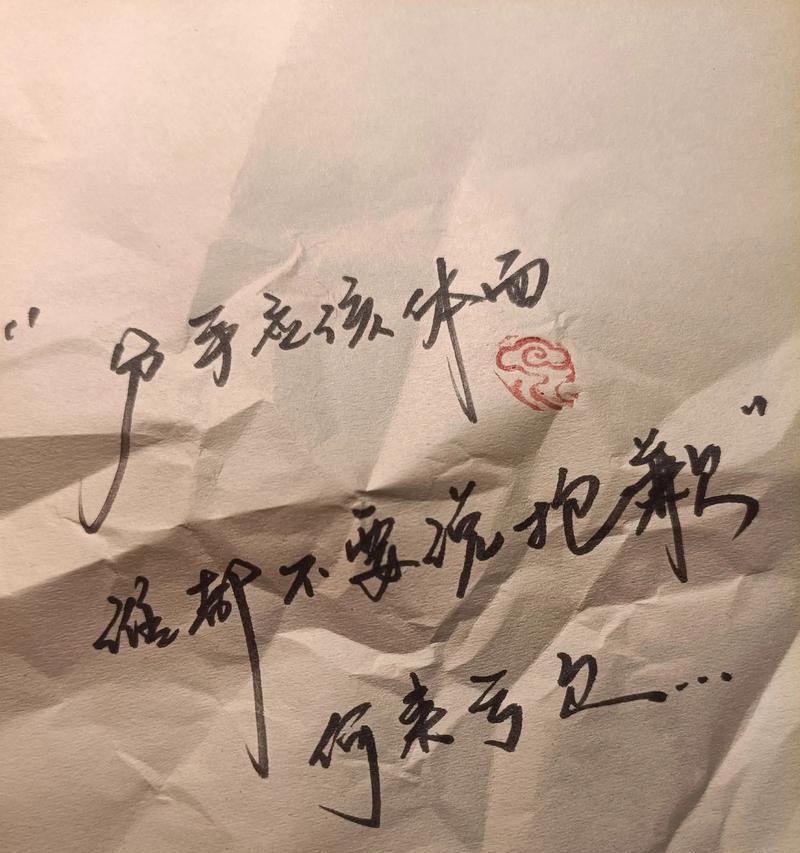 “分手应该体面
谁都不要说抱歉”
何来亏欠…